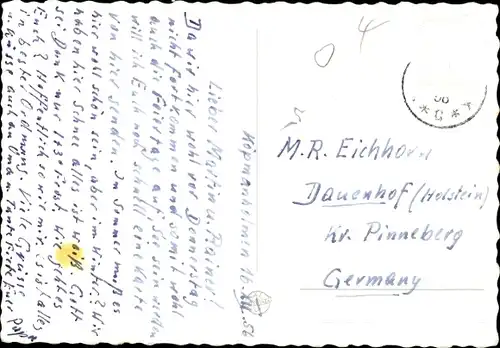 Köpmanholmen 16. XII. 56
Lieber Martin u. Rainer!
Da wir hier wohl vor Donnerstag
nicht fortkommen und somit wohl
auch die Feiertage auf See sein werden
will ich Euch noch schnell eine Karte
von hier senden. Im Sommer muß es
hier wohl schön sein, aber im Winter? Wir
haben hier Schnee alles ist weiß. Gott
sei Dank nur 1÷3° Frost. Wie geht es
Euch? Hoffentlich ist alles
in bester Ordnung. Viele Grüsse
u. Küsse auch an Omama
Papa
M.R. Eichhorn
Dauenhof (Holstein)
Kr. Pinneberg
Germany